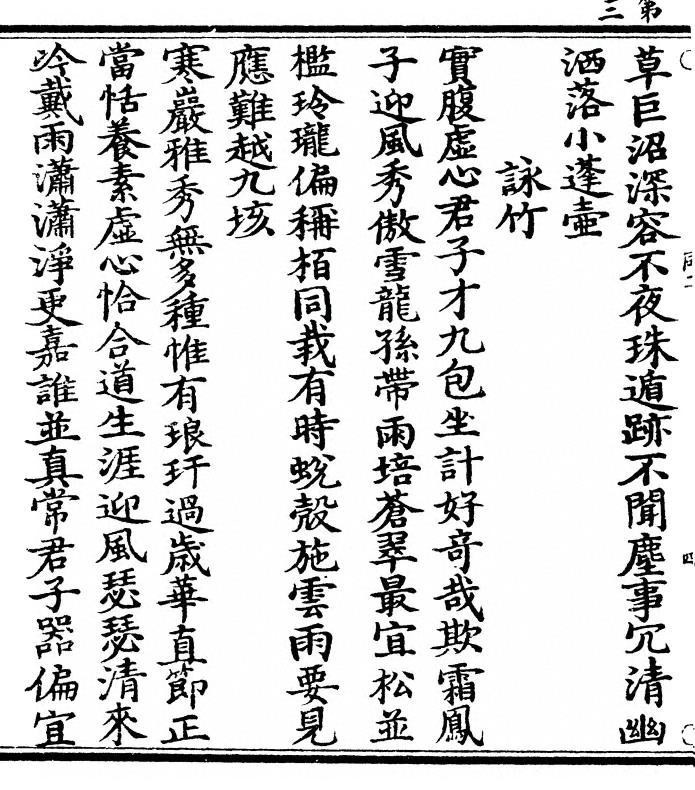 第
三
草巨沼深容不夜珠遁跡不聞塵事冗清幽
洒落小蓬壺
詠竹
實腹虛心君子才九包坐計好奇哉欺霜鳳
子迎風秀傲雪龍孫帶雨培蒼翠最宜松並
檻玲瓏偏稱栢同栽有時蛻殼施雲雨要見
應難越九垓
寒巖雅秀無多種惟有琅玕過歲華直節正
當恬養素虛心恰合道生涯迎風瑟瑟清來
吟戴雨瀟瀟淨更嘉誰並真常君子器偏宜